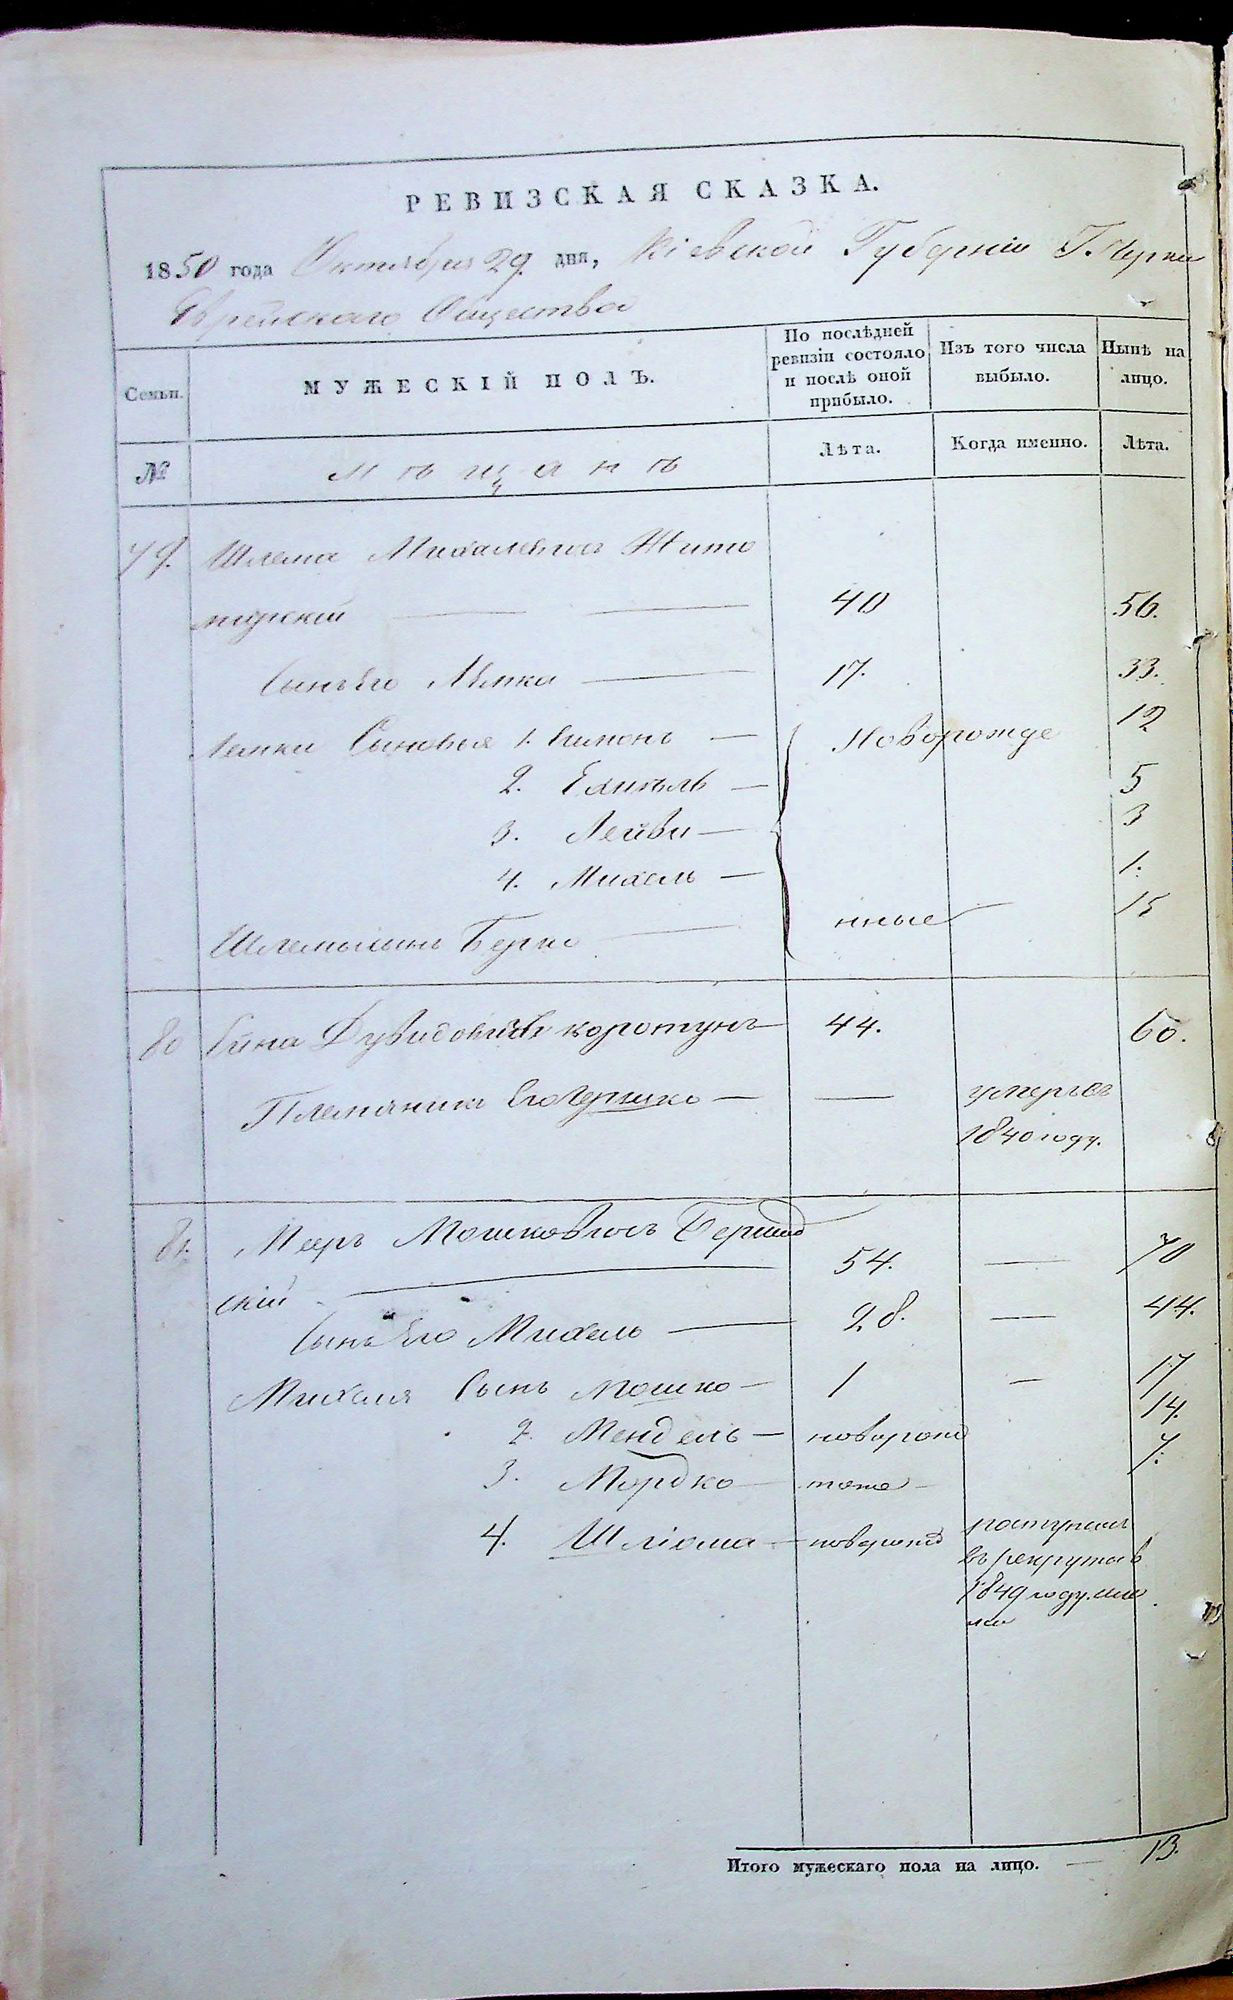 РЕВИЗСКАЯ СКАЗКА.
1850 года Октября 29 дня, Кіевской Губерніи Г. Черка
Еврейскаго Общества
Семьи. МУЖЕСКІЙ ПОЛЪ. По послѣдней ревизіи состояло и послѣ оной прибыло. Изъ того числа выбыло. Нынѣ на лицо.
№ Мѣщанъ Лѣта. Когда именно. Лѣта.
79. Шлема Михелевъ Жито
мирскій 40 56.
Сынъ Его Лемка 17. 33.
Лемки Сыновья 1. Симонъ Новорожде 12
2. Ехиель 5
3. Лейви 3
4. Михель 1.
Шлемы сынъ Берко нные 15
80 Сина Дувидовичъ коротунъ 44. 60.
Племяникъ Его Гершко — умеръ въ
1840 году.
81. Мееръ Мошковъ Бершад
скій 54. — 70
Сынъ Его Михель 28. — 44.
Михеля Сынъ Мошко 1 — 17
2. Мендель — новорожд 14.
3. Мордко — тоже 7.
4. Шліома — новорожд поступилъ
въ рекруты в
1849 году.
Итого мужескаго пола на лицо. — 13.